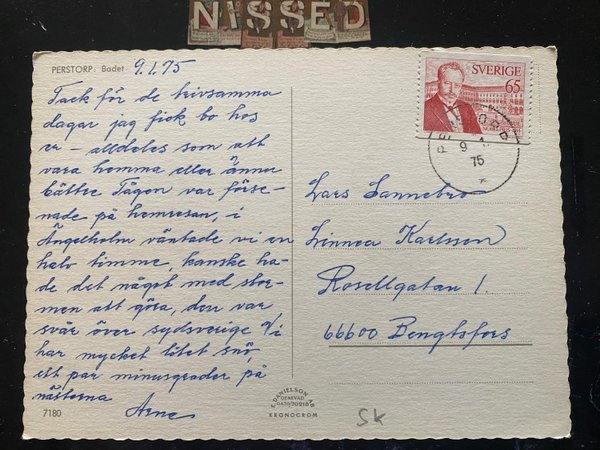 NISSED
PERSTORP: Badet 9.1.75
SVERIGE
65
9 1
75
Tack för de trivsamma
dagar jag fick bo hos
er – alldeles som att
vara hemma eller ännu
bättre Tågen var förse-
nade på hemresan, i
Ängelholm väntade vi en
halv timme, kanske ha-
de det något med stor-
men att göra, den var
svår över sydsverige Vi
har mycket litet snö,
ett par minusgrader på
nätterna
Arne
Lars Sannebro
Linnea Karlsson
Rosellgatan 1.
66600 Bengtsfors
7180
E. DANIELSON AB
KRONOCROM
SK